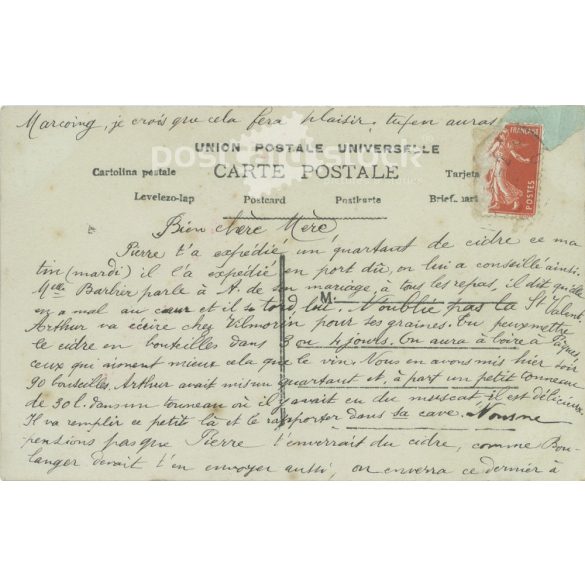 Marcoing, je crois que cela fera plaisir. tu en auras
postcard stock
UNION POSTALE UNIVERSELLE
CARTE POSTALE
Cartolina postale
Tarjeta
Levelezo-lap Postcard Postkarte Brief
FRANÇAISE
POSTES
Bien chère Mère
Pierre t'a expédié un quartant de cidre ce ma
tin (mardi) il l'a expédié en port dû, on lui a conseillé ainsi.
Melle Barbier parle à A. de son mariage, à tous les repas, il dit qu'elle
en a mal au cœur et il tord lui. N'oublie pas la St Valent.
M
Arthur va écrire chez Vilmorin pour ses graines. Tu peux mettre
le cidre en bouteilles dans 3 ou 4 jours. On aura à boire à Pâques,
ceux qui aiment mieux cela que le vin. Nous en avons mis hier soir
90 bouteilles. Arthur avait mis un quartant A. à part un petit tonneau
de 30 l. dans un tonneau où il y avait eu du muscat il est délicieux
Il va remplir ce petit là et le rapporter dans sa cave. Nous ne
pensions pas que Pierre t'enverrait du cidre, comme Bou-
langer devait t'en envoyer aussi, on enverra ce dernier à